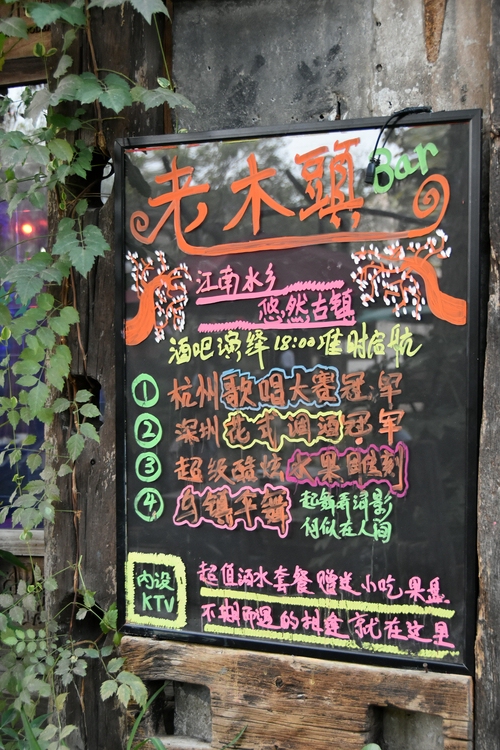 老木頭 Bar
江南水乡
悠然古镇
酒吧演绎18:00准时启航
① 杭州歌唱大赛冠军
② 深圳花式调酒冠军
③ 超级酷炫水果雕刻
④ 乌镇伞舞 起舞弄清影
何似在人间
内设
KTV
超值酒水套餐赠送小吃果盘
不期而遇的邂逅就在这里